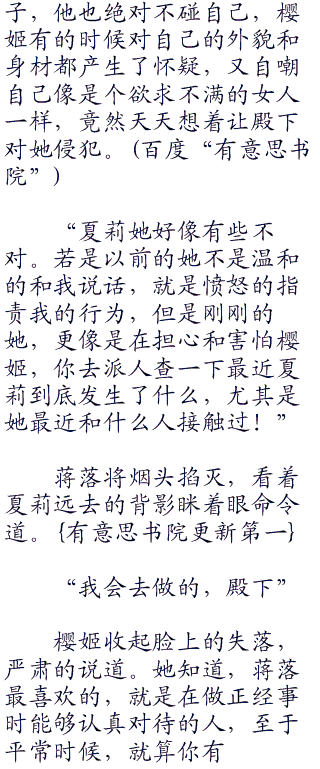 子，他也绝对不碰自己，樱
姬有的时候对自己的外貌和
身材都产生了怀疑，又自嘲
自己像是个欲求不满的女人
一样，竟然天天想着让殿下
对她侵犯。(百度“有意思书
院”)
“夏莉她好像有些不
对。若是以前的她不是温和
的和我说话，就是愤怒的指
责我的行为，但是刚刚的
她，更像是在担心和害怕樱
姬，你去派人查一下最近夏
莉到底发生了什么，尤其是
她最近和什么人接触过！”
蒋落将烟头掐灭，看着
夏莉远去的背影眯着眼命令
道。{有意思书院更新第一}
“我会去做的，殿下”
樱姬收起脸上的失落，
严肃的说道。她知道，蒋落
最喜欢的，就是在做正经事
时能够认真对待的人，至于
平常时候，就算你有